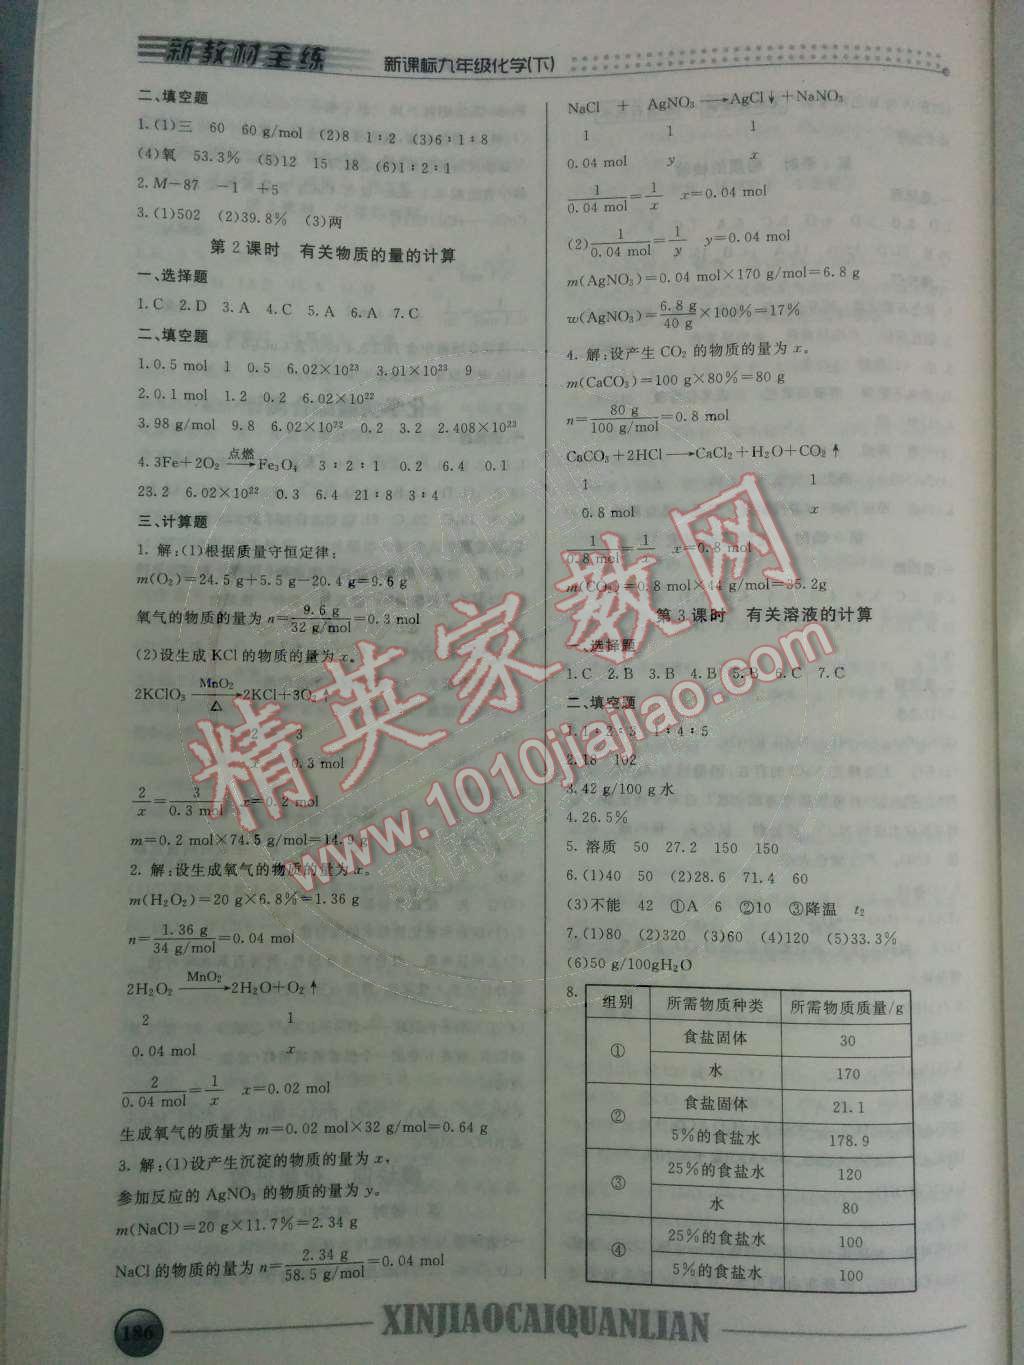 新教材全练
新课标九年级化学(下)
二、填空题
1.(1)三 60 60 g/mol (2)8 1∶2 (3)6∶1∶8
(4)氧 53.3% (5)12 15 18 (6)1∶2∶1
2.M-87 -1 +5
3.(1)502 (2)39.8% (3)两
第2课时 有关物质的量的计算
一、选择题
1.C 2.D 3.A 4.C 5.A 6.A 7.C
二、填空题
1.0.5 mol 1 0.5 6.02×10²³ 3.01×10²³ 9
2.0.1 mol 1.2 0.2 6.02×10²²
3.98 g/mol 9.8 6.02×10²² 0.2 3.2 2.408×10²³
4.3Fe+2O₂ 点燃→ Fe₃O₄ 3∶2∶1 0.2 6.4 0.1
23.2 6.02×10²² 0.3 6.4 21∶8 3∶4
三、计算题
1. 解:(1)根据质量守恒定律:
m(O₂)=24.5 g+5.5 g-20.4 g=9.6 g
氧气的物质的量为 n=9.6 g/32 g/mol=0.3 mol
(2)设生成 KCl 的物质的量为 x。
2KClO₃ MnO₂→△ 2KCl+3O₂↑
2 3
x 0.3 mol
2/x=3/0.3 mol x=0.2 mol
m=0.2 mol×74.5 g/mol=14.9 g
2. 解:设生成氧气的物质的量为 x。
m(H₂O₂)=20 g×6.8%=1.36 g
n=1.36 g/34 g/mol=0.04 mol
2H₂O₂ MnO₂→ 2H₂O+O₂↑
2 1
0.04 mol x
2/0.04 mol=1/x x=0.02 mol
生成氧气的质量为 m=0.02 mol×32 g/mol=0.64 g
3. 解:(1)设产生沉淀的物质的量为 x,
参加反应的 AgNO₃ 的物质的量为 y。
m(NaCl)=20 g×11.7%=2.34 g
NaCl 的物质的量为 n=2.34 g/58.5 g/mol=0.04 mol
NaCl + AgNO₃ → AgCl↓+NaNO₃
1 1 1
0.04 mol y x
1/0.04 mol=1/x x=0.04 mol
(2)1/0.04 mol=1/y y=0.04 mol
m(AgNO₃)=0.04 mol×170 g/mol=6.8 g
w(AgNO₃)=6.8 g/40 g×100%=17%
4. 解:设产生 CO₂ 的物质的量为 x。
m(CaCO₃)=100 g×80%=80 g
n=80 g/100 g/mol=0.8 mol
CaCO₃+2HCl→CaCl₂+H₂O+CO₂↑
1 1
0.8 mol x
1/0.8 mol=1/x x=0.8 mol
m(CO₂)=0.8 mol×44 g/mol=35.2g
第3课时 有关溶液的计算
一、选择题
1.C 2.B 3.B 4.B 5.B 6.C 7.C
二、填空题
1.1∶2∶5 1∶4∶5
2.18 102
3.42 g/100 g水
4.26.5%
5. 溶质 50 27.2 150 150
6.(1)40 50 (2)28.6 71.4 60
(3)不能 42 ①A 6 ②10 ③降温 t₂
7.(1)80 (2)320 (3)60 (4)120 (5)33.3%
(6)50 g/100gH₂O
8.
组别 所需物质种类 所需物质质量/g
① 食盐固体 30
水 170
② 食盐固体 21.1
5%的食盐水 178.9
③ 25%的食盐水 120
水 80
④ 25%的食盐水 100
5%的食盐水 100
186
XINJIAOCAIQUANLIAN
精英家教网
www.1010jiajiao.com